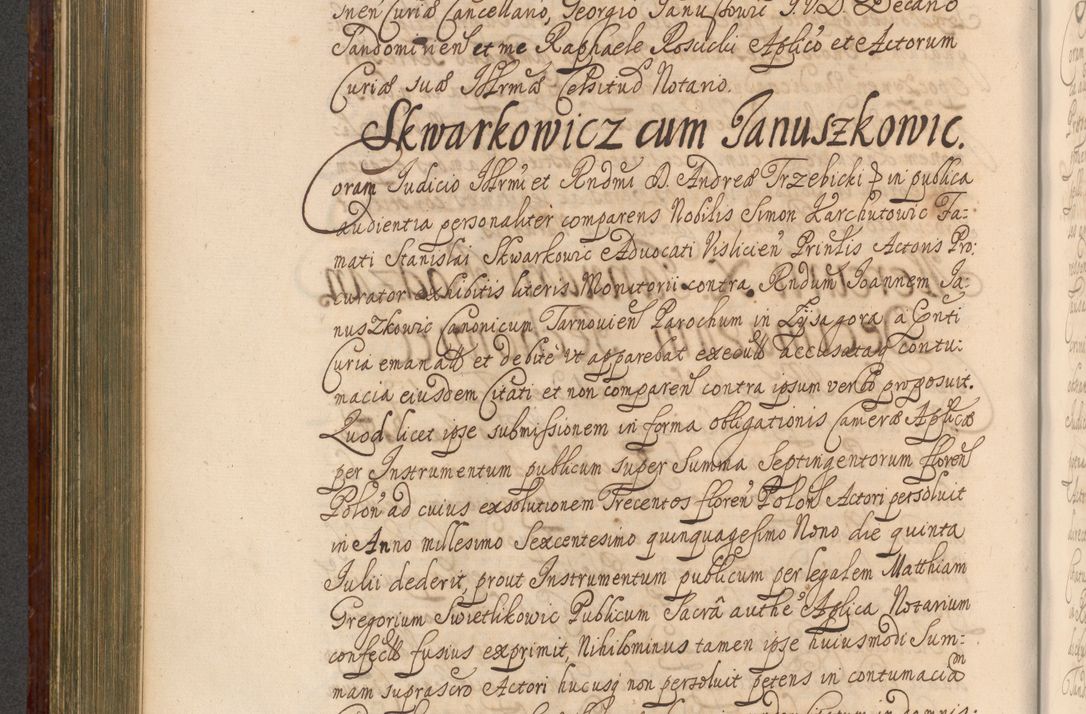 nen Curiæ Cancellario, Georgio Januszkowic J.V.D. Decano
Sandomirien et me Raphaele Roscicki Aplico et Actorum
Curiæ suæ Illrmæ Celsitud Notario.
Skwarkowicz cum Januszkowic.
Coram Judicio Illrmi et Rndmi D. Andreæ Trzebicki in publica
audientia personaliter comparens Nobilis Simon Karchutowic Fa:
mati Stanislai Skwarkowic Advocati Vislicien Prinlis Actoris Pro:
curator exhibitis literis Monitorii contra Rndum Joannem Ja:
nuszkowic Canonicum Tarnovien Parochum in Łysagora, a Cnti
Curia emanatt et debite ut apparebat execut accusatay contu:
macia eiusdem Citati et non comparen contra ipsum verbo proposuit.
Quod licet ipse submissionem in forma obligationis Cameræ Aplicæ
per Instrumentum publicum super Summa Septingentorum floren
Polon ad cuius exsolutionem Trecentos floren Polon Actori persoluit
in Anno millesimo Sexcentesimo quinquagesimo Nono die quinta
Julii dederit, prout Instrumentum publicum per legalem Matthiam
Gregorium Swietlikowic Publicum Sacrâ authe Aplica Notarium
confect fusius exprimit, Nihilominus tamen ipse huiusmodi Sum:
mam suprascro Actori hucusq non persoluit petens in contumaciam